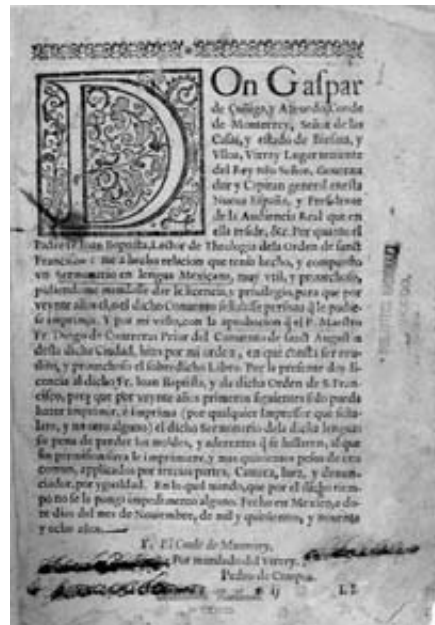 DOn Gaspar
de Çuñiga, y Azeuedo, Conde
de Monterrey, Señor de las
Casas, y estado de Biedma, y
Vlloa, Virrey Lugar teniente
del Rey nro Señor, Gouerna
dor y Capitan general en esta
Nueua España, y Presidente
de la Audiencia Real que en
ella reside, &c. Por quanto el
Padre fr. Ioan Baptista, Lector de Theologia dela Orden de sanct
Francisco: me a hecho relacion que tenia hecho, y compuesto
vn Sermonario en lengua Mexicana, muy vtil, y prouechoso,
pidiendome mandasse dar le licencia, y priuilegio, para que por
veynte años el, o el dicho Conuento personas q̃ le pudie
se imprimir. Y por mi visto, con la aprobacion q̃ el P. Maestro
Fr. Diego de Contreras Prior del Conuento de sanct Augustin
desta dicha Ciudad, hizo por mi orden, en que consta ser eru
dito, y prouechoso el sobredicho Libro. Por la presente doy li
cencia al dicho Fr. Ioan Baptista, y ala dicha Orden de S. Fran
cisco, para que por veynte años primeros siguientes solo pueda
hazer imprimir, è imprima (por qualquier Impressor que seña
lare, y no otro alguno) el dicho Sermonario dela dicha lengua
so pena de perder los moldes, y aderentes q̃ se hallaren, al que
sin permission suya le imprimiere, y mas quinientos pesos de oro
comun, applicados por tercias partes, Camara, Iuez, y denun
ciador, por ygualdad. En lo qual mando, que por el dicho tiem
po no se le ponga impedimento alguno. Fecho en Mexico, a do
ze dias del mes de Nouiembre, de mil y quinientos, y nouenta
y ocho años.
El Conde de Monterrey,
Por mandado del Virrey.
Pedro de Campos.